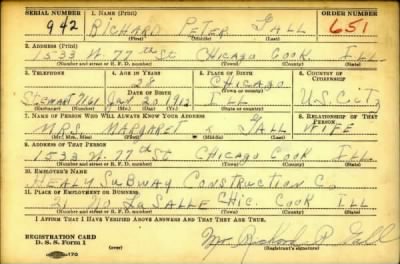 SERIAL NUMBER 1. NAME (Print) ORDER NUMBER
942 RICHARD PETER GALL 651
(First) (Middle) (Last)
2. ADDRESS (Print)
1533 W. 77th St CHICAGO COOK ILL.
(Number and street or R. F. D. number) (Town) (County) (State)
3. TELEPHONE 4. AGE IN YEARS 5. PLACE OF BIRTH 6. COUNTRY OF CITIZENSHIP
28 CHICAGO
DATE OF BIRTH
Stewart 7161 Jan 20 1912 ILL U.S. CITZ
(Exchange) (No.) (Mo.) (Day) (Yr.) (State or country)
7. NAME OF PERSON WHO WILL ALWAYS KNOW YOUR ADDRESS 8. RELATIONSHIP OF THAT PERSON
MRS. MARGARET GALL WIFE
(Mr., Mrs., Miss) (First) (Middle) (Last)
9. ADDRESS OF THAT PERSON
1533 W. 77th St CHICAGO COOK ILL.
(Number and street or R. F. D. number) (Town) (County) (State)
10. EMPLOYER'S NAME
HEALY SUBWAY CONSTRUCTION Co.
11. PLACE OF EMPLOYMENT OR BUSINESS
31 NO. LA SALLE CHIC. COOK ILL
(Number and street or R. F. D. number) (Town) (County) (State)
I AFFIRM THAT I HAVE VERIFIED ABOVE ANSWERS AND THAT THEY ARE TRUE.
REGISTRATION CARD
D. S. S. Form 1 Mr. Richard P. Gall
(Registrant's signature)